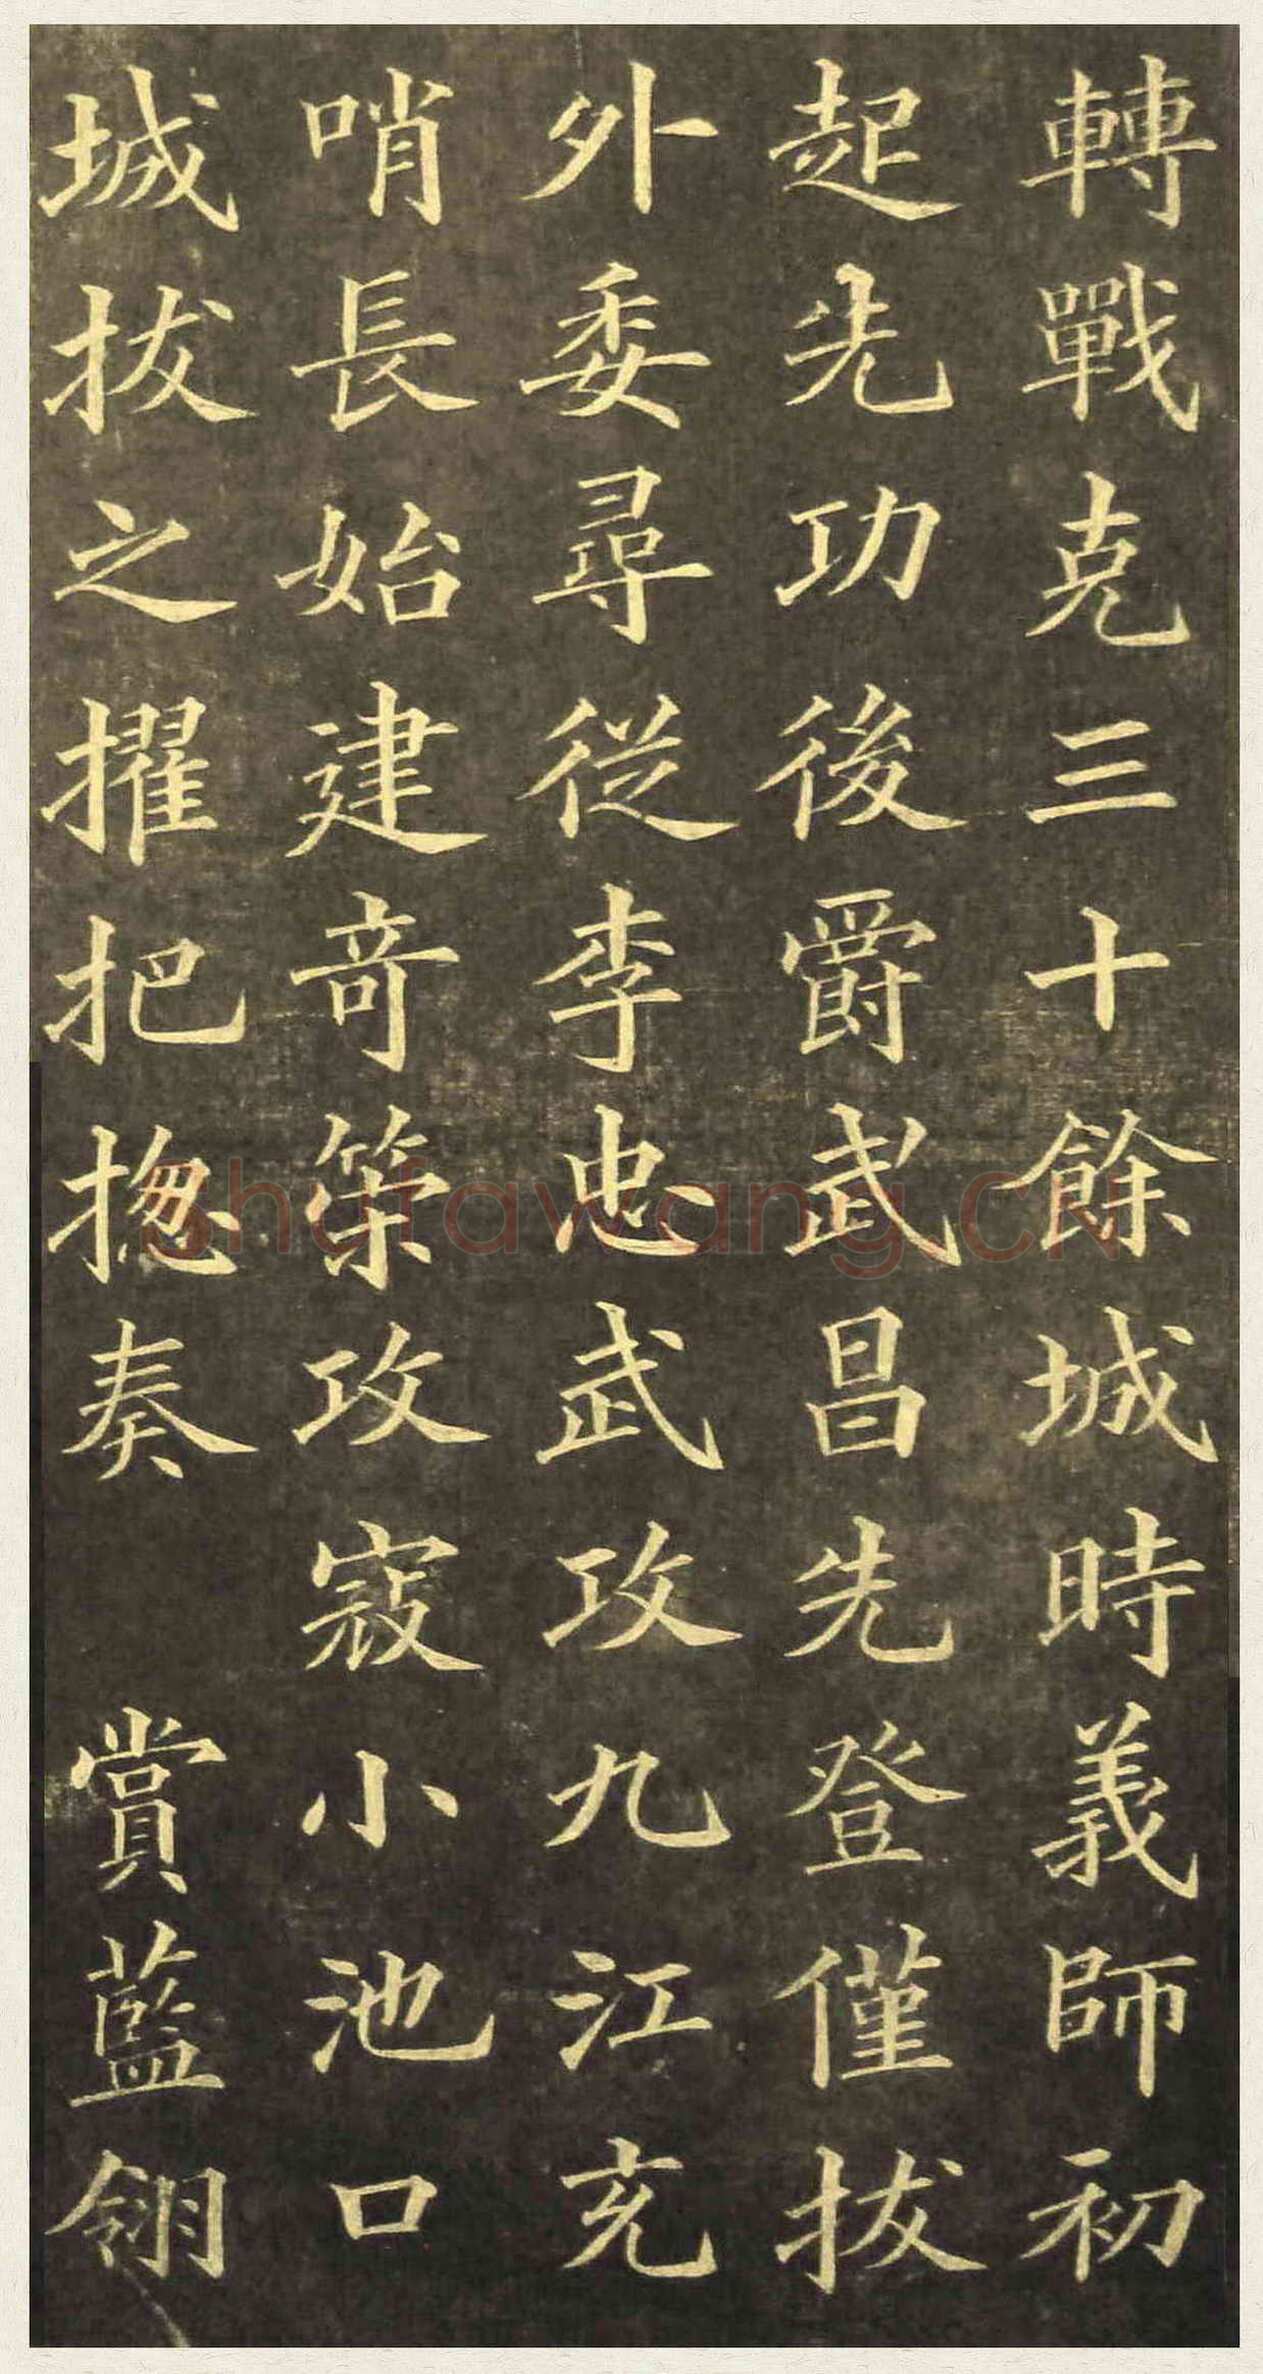 轉戰克三十餘城時義師初
起先功後爵武昌先登僅拔
外委尋從李忠武攻九江充
哨長始建奇策攻寇小池口
城拔之擢把揔奏 賞藍翎
shufawang.CN